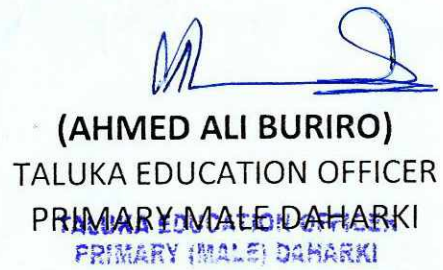 (AHMED ALI BURIRO)
TALUKA EDUCATION OFFICER
PRIMARY MALE DAHARKI
TALUKA EDUCATION OFFICER
PRIMARY (MALE) DAHARKI